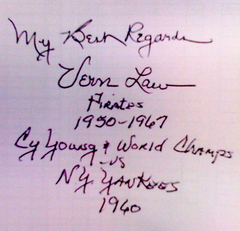 My Best Regards
Vern Law
Pirates
1950-1967
Cy Young & World Champs
-vs
NY Yankees
1960